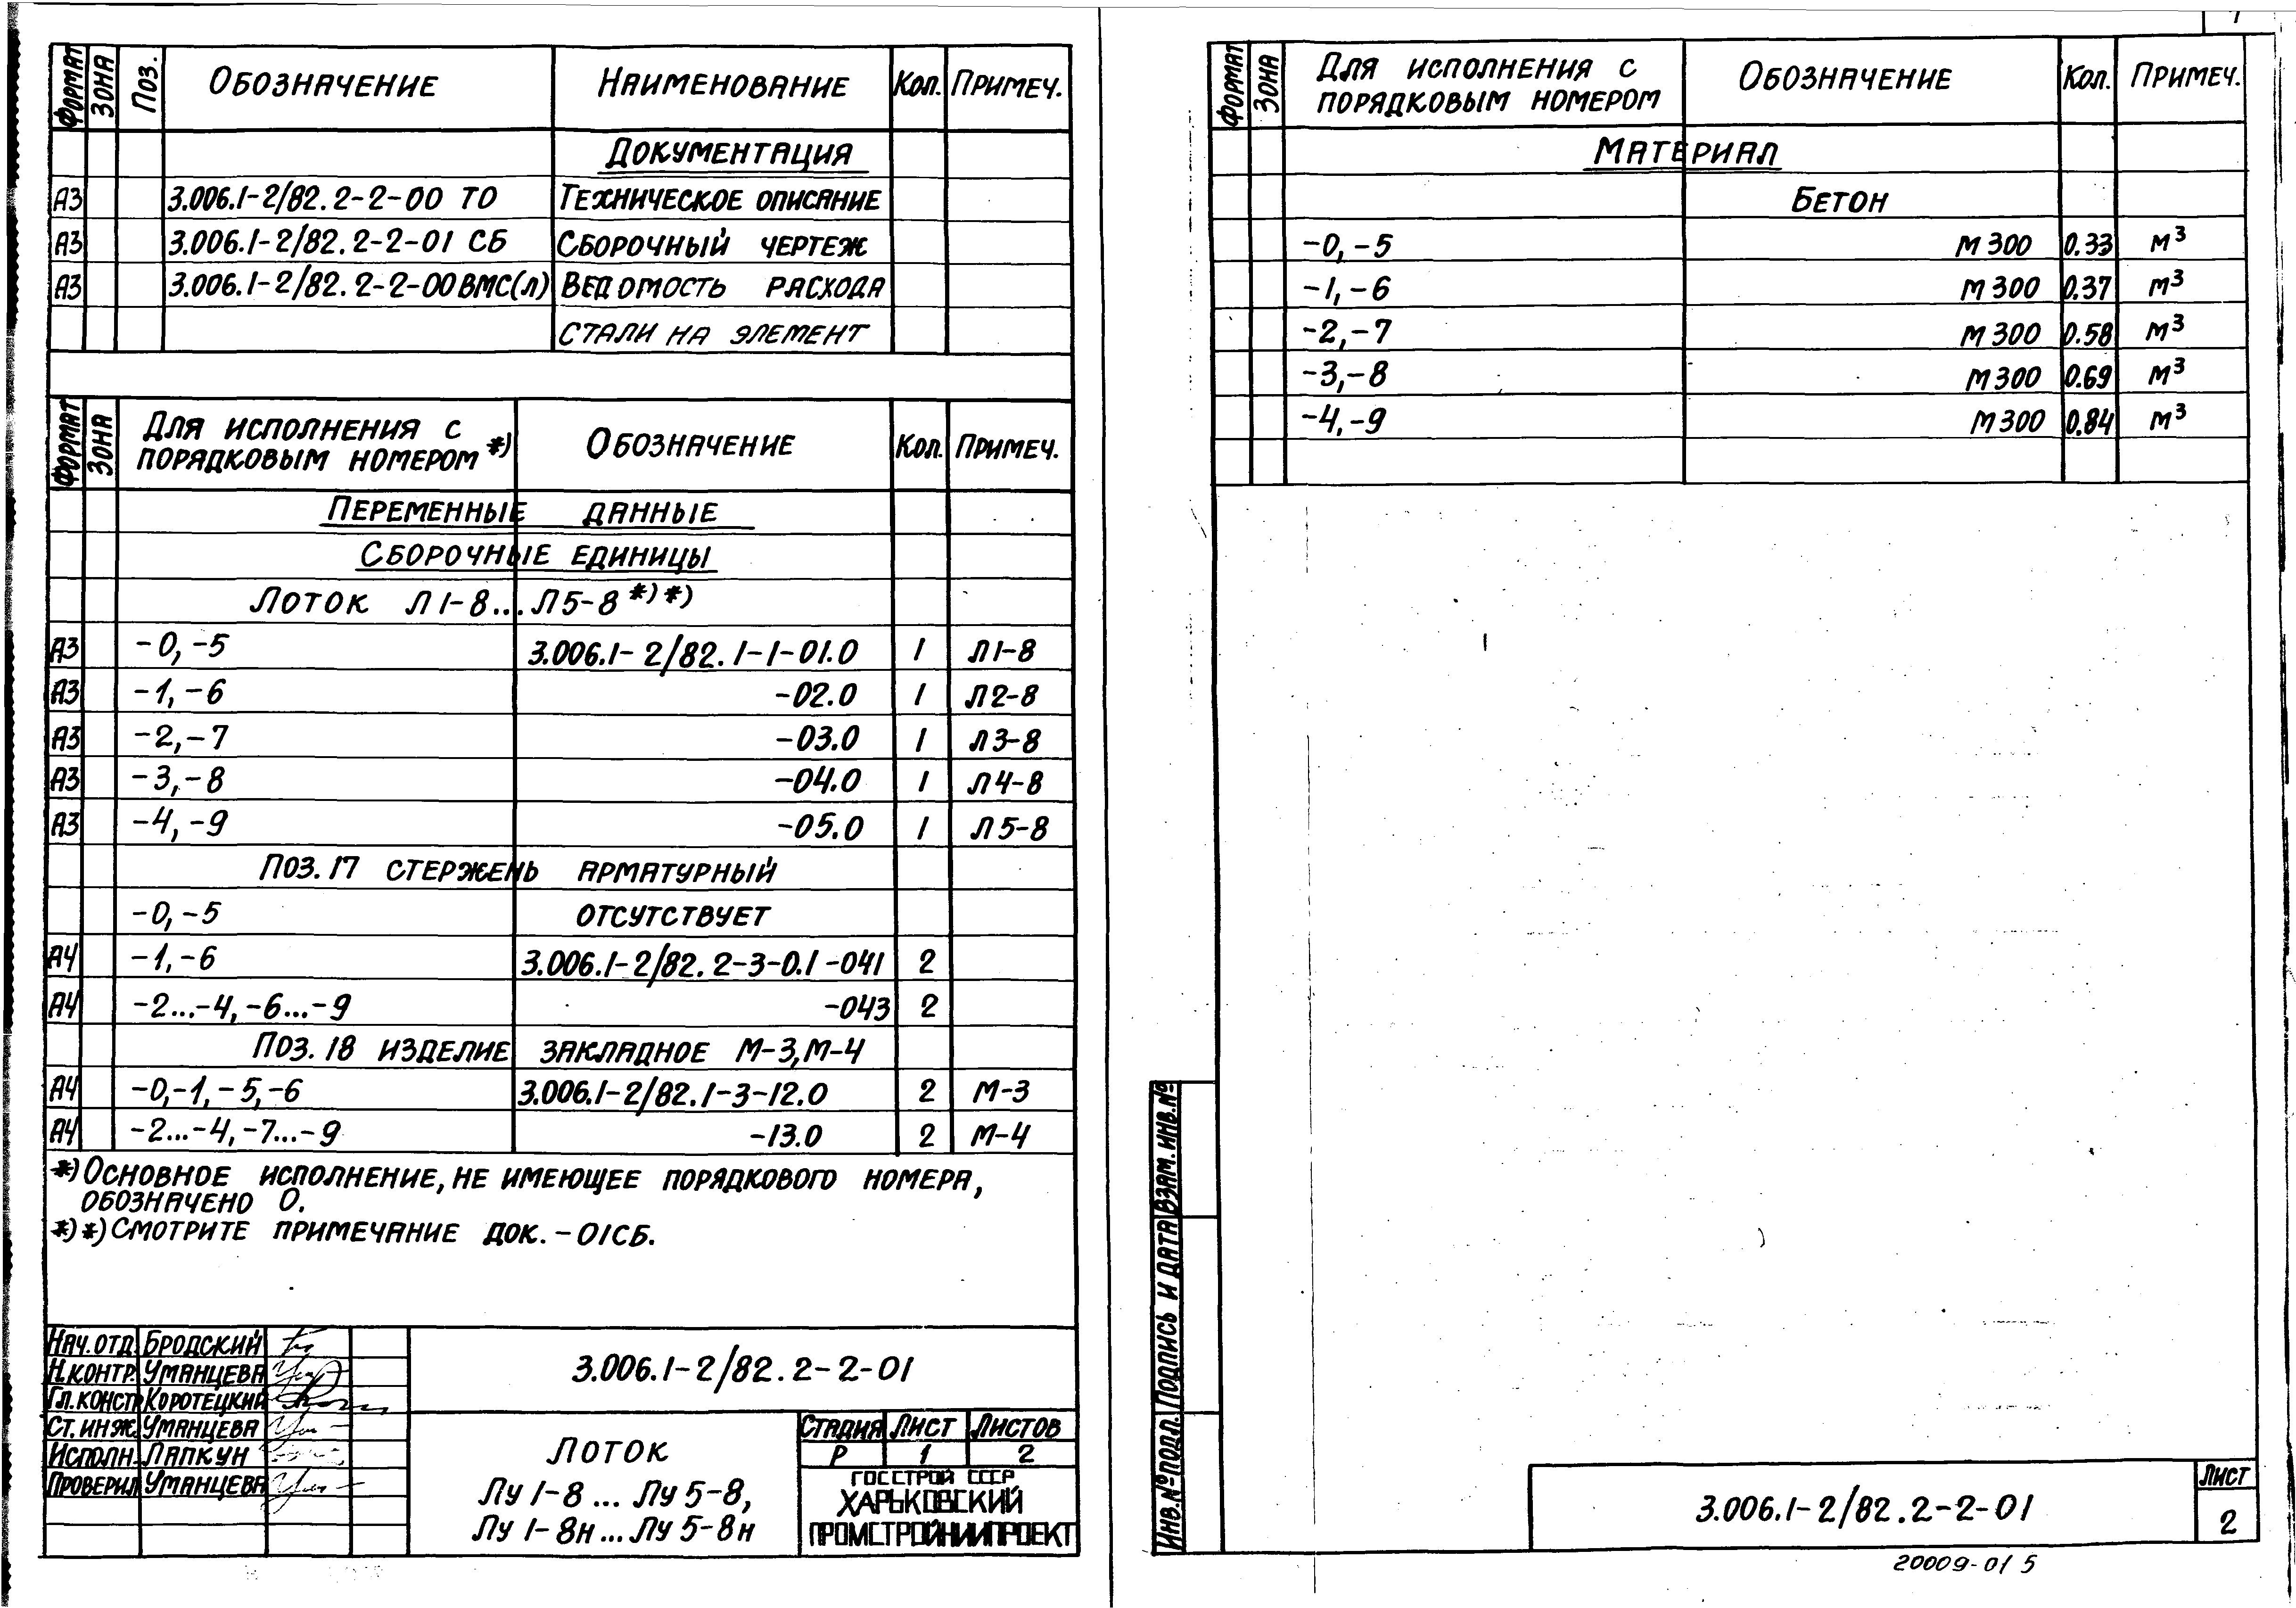 Формат Зона Поз. Обозначение Наименование Кол. Примеч.
Документация
А3 3.006.1-2/82.2-2-00 ТО Техническое описание
А3 3.006.1-2/82.2-2-01 СБ Сборочный чертеж
А3 3.006.1-2/82.2-2-00ВМС(Л) Ведомость расхода
стали на элемент
Формат Зона Для исполнения с порядковым номером *) Обозначение Кол. Примеч.
Переменные данные
Сборочные единицы
Лоток Л1-8...Л5-8 *)*)
А3 -0, -5 3.006.1-2/82.1-1-01.0 1 Л1-8
А3 -1, -6 -02.0 1 Л2-8
А3 -2, -7 -03.0 1 Л3-8
А3 -3, -8 -04.0 1 Л4-8
А3 -4, -9 -05.0 1 Л5-8
Поз. 17 стержень арматурный
-0, -5 отсутствует
А4 -1, -6 3.006.1-2/82.2-3-0.1-041 2
А4 -2...-4, -6...-9 -043 2
Поз. 18 изделие закладное М-3, М-4
А4 -0, -1, -5, -6 3.006.1-2/82.1-3-12.0 2 М-3
А4 -2...-4, -7...-9 -13.0 2 М-4
*) Основное исполнение, не имеющее порядкового номера,
обозначено 0.
*)*) Смотрите примечание док. -01СБ.
Нач.отд. Бродский
Н.контр. Уманцева
Гл.констр Коротецкий
Ст.инж. Уманцева
Исполн. Лапкун
Проверил Уманцева
3.006.1-2/82.2-2-01
Лоток
Лу 1-8 ... Лу 5-8,
Лу 1-8н ... Лу 5-8н
Стадия Лист Листов
Р 1 2
ГОССТРОЙ СССР
ХАРЬКОВСКИЙ
ПРОМСТРОЙНИИПРОЕКТ
Формат Зона Для исполнения с порядковым номером Обозначение Кол. Примеч.
Материал
Бетон
-0, -5 М300 0.33 м³
-1, -6 М300 0.37 м³
-2, -7 М300 0.58 м³
-3, -8 М300 0.69 м³
-4, -9 М300 0.84 м³
Инв.№подл. Подпись и дата Взам.инв.№
3.006.1-2/82.2-2-01
Лист
2
20009-01 5